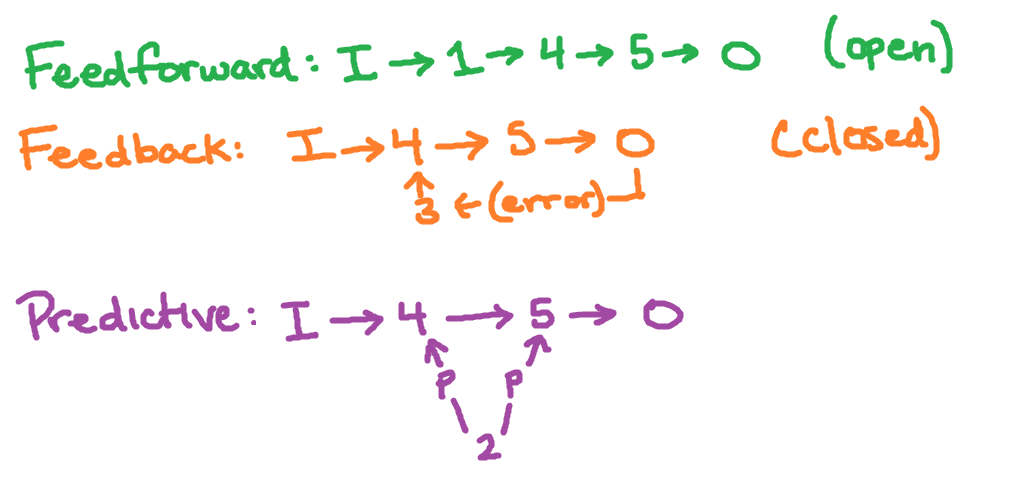 Feedforward: I → 1 → 4 → 5 → O (open)
Feedback: I → 4 → 5 → O (closed)
3 ← (error)
Predictive: I → 4 → 5 → O
P P
2